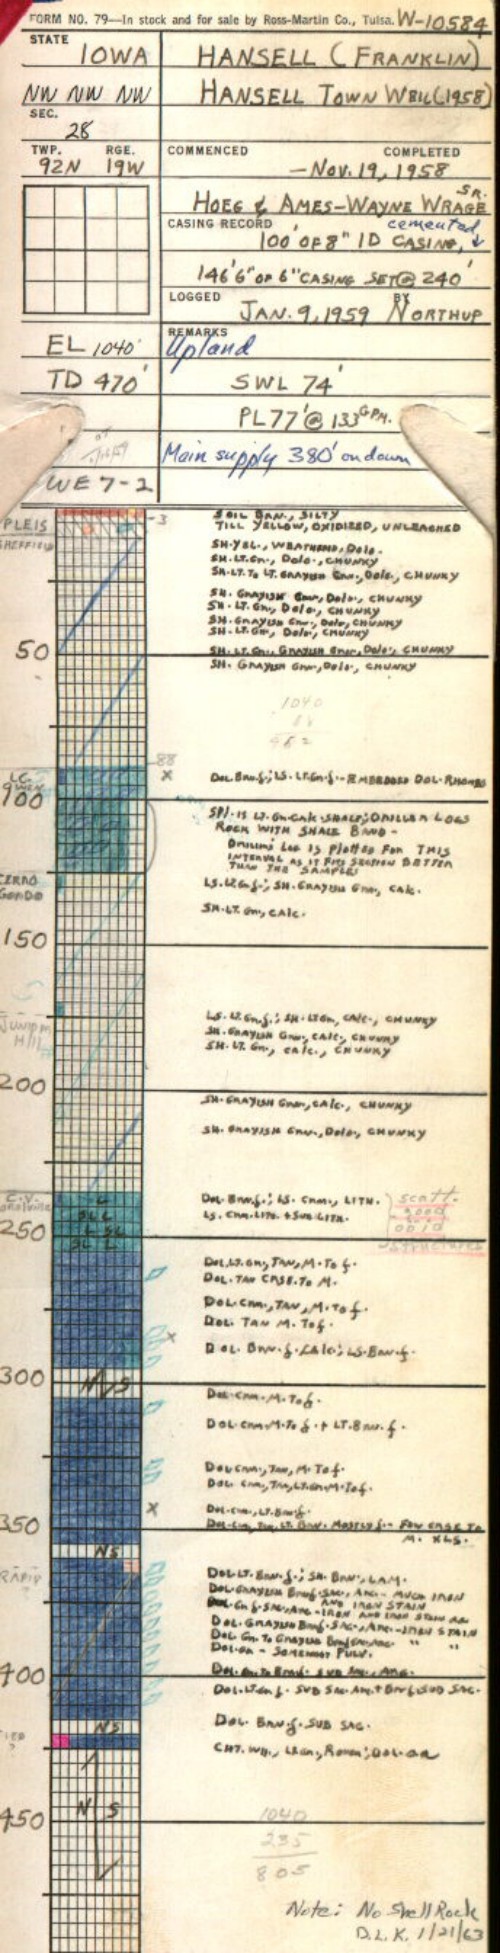 FORM NO. 79—In stock and for sale by Ross-Martin Co., Tulsa. W-10584
STATE
IOWA
HANSELL (FRANKLIN)
NW NW NW
HANSELL TOWN WELL (1958)
SEC.
28
TWP. RGE.
92N 19W
COMMENCED COMPLETED
-NOV. 19, 1958
HOEG & AMES-WAYNE WRAGE SR.
CASING RECORD cemented
100' OF 8" ID CASING, ↓
146'6" OF 6" CASING SET @ 240'
LOGGED BY
JAN. 9, 1959 NORTHUP
REMARKS
EL 1040'
Upland
TD 470'
SWL 74'
PL 77' @ 133 GPM.
Main supply 380' on down
WE 7-2
PLEIS
SHEFFIELD
3
SOIL BRN., SILTY
TILL YELLOW, OXIDIZED, UNLEACHED
SH-YEL., WEATHERED, DOLO.
SH-LT. GN., DOLO., CHUNKY
SH-LT. TO LT. GRAYISH GRN., DOLO., CHUNKY
SH. GRAYISH GRN., DOLO., CHUNKY
SH. LT. GN., DOLO., CHUNKY
SH. GRAYISH GRN., DOLO., CHUNKY
SH-LT. GN., DOLO., CHUNKY
50
SH. LT. GN., GRAYISH GRN., DOLO., CHUNKY
SH. GRAYISH GRN., DOLO., CHUNKY
1040
88
952
88
x
DOL. BRN. f.; LS. LT. GN. f. - EMBEDDED DOL. RHOMBS
100
SPL. IS LT. GN. CALC. SHALE; DRILLER LOGS
ROCK WITH SHALE BAND -
DRILLERS LOG IS PLOTTED FOR THIS
INTERVAL AS IT FITS SECTION BETTER
THAN THE SAMPLES
CERRO
GORDO
LS. LT. GN. f.; SH. GRAYISH GRN., CALC.
SH. LT. GN., CALC.
150
JUNIPER
HILL
LS. LT. GN. f.; SH. LT. GN., CALC., CHUNKY
SH. GRAYISH GRN., CALC., CHUNKY
SH. LT. GN., CALC., CHUNKY
200
SH. GRAYISH GRN., CALC., CHUNKY
SH. GRAYISH GRN., DOLO., CHUNKY
C.V.
L
DOL. BRN. f.; LS. CRM., LITH.
SL L
LS. CRM. LITH. + SUB LITH.
scatt.
good
ooid
structures
L SL
SL L
250
DOL. LT. GN., TAN, M. TO f.
DOL. TAN CRSE. TO M.
DOL. CRM., TAN, M. TO f.
DOL. TAN M. TO f.
x
DOL. BRN. f. CALC.; LS. BRN. f.
300
N/S
DOL. CRM. M. TO f.
DOL. CRM. M. TO f. + LT. BRN. f.
DOL. CRM., TAN, M. TO f.
DOL. CRM., TAN, LT. GN. M. TO f.
x
DOL. CRM., LT. BRN. f.
350
DOL. CRM., TAN, LT. BRN. MOSTLY f. - FEW CRSE TO
M. XLS.
NS
RAPID
DOL. LT. BRN. f.; SH. BRN., LAM.
DOL. GRAYISH BRN. f. SAC., ARG. - MUCH IRON
AND IRON STAIN
DOL. GN. f. SAC., ARG. - IRON AND IRON STAIN
DOL. GRAYISH BRN. f. SAC., ARG. - IRON STAIN
DOL. GN. TO GRAYISH BRN. f. SAC., ARG. " "
DOL. GN. - SOMEWHAT PULV.
400
DOL. GN. TO BRN. f. SUB SAC., ARG.
DOL. LT. GN. f. SUB SAC. ARG. + BRN. f. SUB SAC.
NS
DOL. BRN. f. SUB SAC.
CHT. WH., LT. GN., ROUGH; DOL. AA
N S
450
1040
235
805
Note: No Shell Rock
D.L.K. 1/21/63